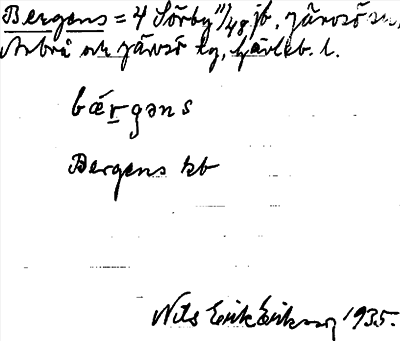 Bergens = 4 Sörby 11/48 jb, Järvsö sn,
Arbrå och Järvsö tg, Gävleb. l.
bǽrgəns
Bergens kb
Nils Erik Eriksson 1935.